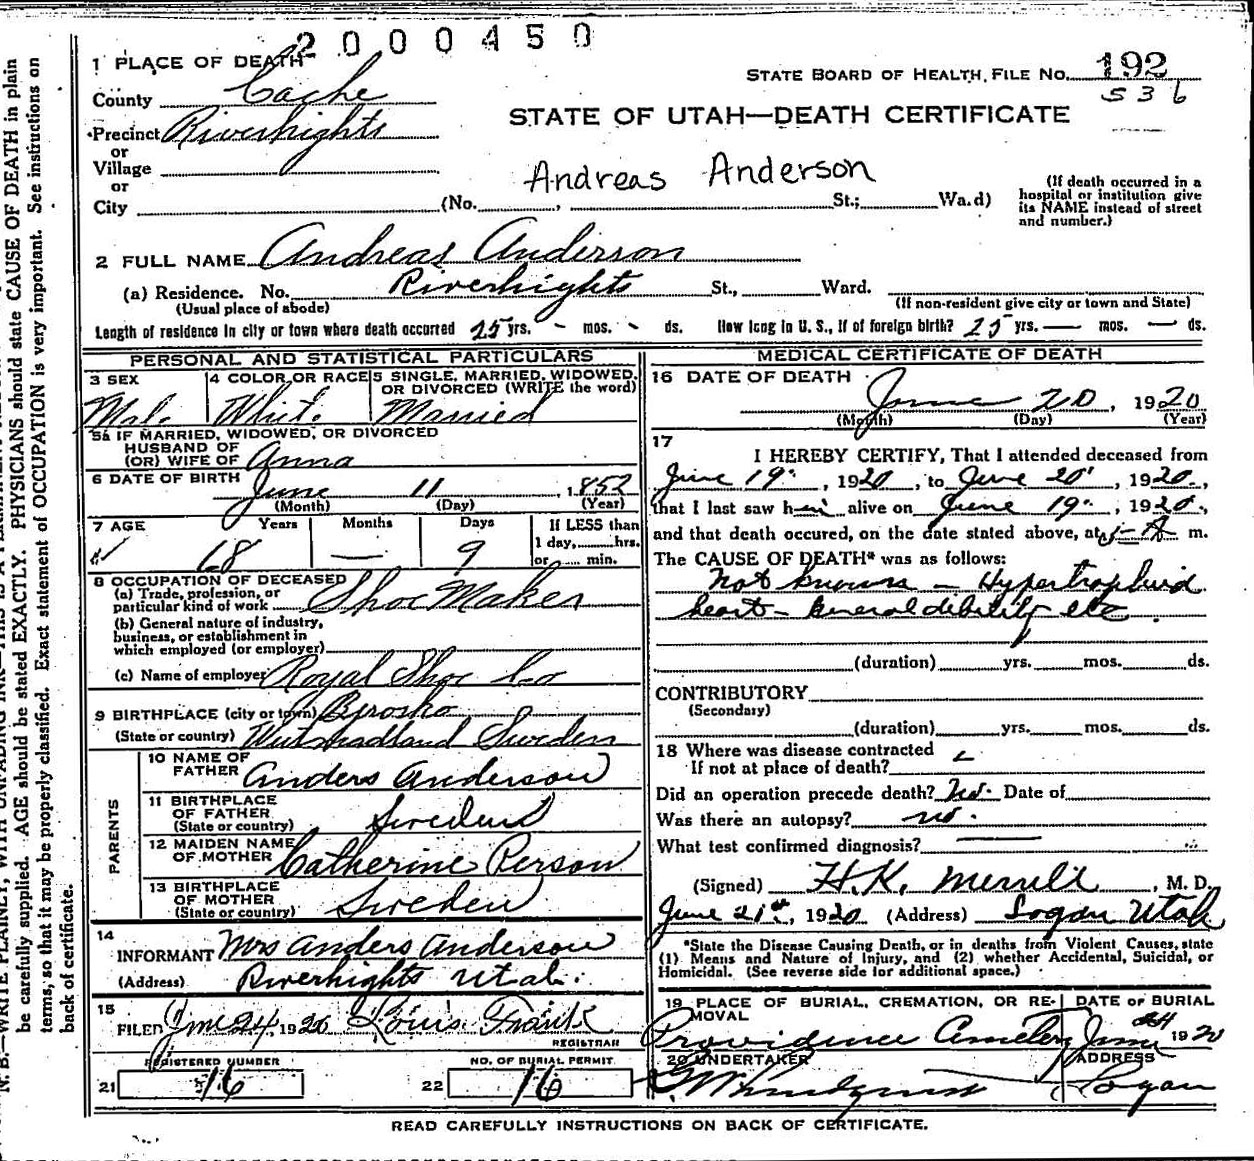 2000450
1 PLACE OF DEATH
STATE BOARD OF HEALTH, FILE No. 192
536
County Cache
STATE OF UTAH—DEATH CERTIFICATE
Precinct Riverhights
or
Village
or
City (No. , St.; Wa.d)
Andreas Anderson
(If death occurred in a hospital or institution give its NAME instead of street and number.)
2 FULL NAME Andreas Anderson
(a) Residence. No. Riverhights St., Ward.
(Usual place of abode) (If non-resident give city or town and State)
Length of residence in city or town where death occurred 25 yrs. - mos. - ds. How long in U. S., if of foreign birth? 25 yrs. — mos. — ds.
PERSONAL AND STATISTICAL PARTICULARS
3 SEX Male
4 COLOR OR RACE White
5 SINGLE, MARRIED, WIDOWED, OR DIVORCED (WRITE the word) Married
5a IF MARRIED, WIDOWED, OR DIVORCED
HUSBAND OF
(OR) WIFE OF Anna
6 DATE OF BIRTH June 11, 1852
(Month) (Day) (Year)
7 AGE Years Months Days If LESS than
68 — 9 1 day, hrs.
or min.
8 OCCUPATION OF DECEASED
(a) Trade, profession, or
particular kind of work Shoe Maker
(b) General nature of industry,
business, or establishment in
which employed (or employer)
(c) Name of employer Royal Shoe Co
9 BIRTHPLACE (city or town)
(State or country) Sweden
PARENTS
10 NAME OF FATHER Anders Anderson
11 BIRTHPLACE OF FATHER
(State or country) Sweden
12 MAIDEN NAME OF MOTHER Catherine Person
13 BIRTHPLACE OF MOTHER
(State or country) Sweden
14 INFORMANT Mrs Anders Anderson
(Address) Riverhights Utah.
15 FILED June 24, 1920 Louis Frank
REGISTRAR
REGISTERED NUMBER NO. OF BURIAL PERMIT
21 16 22 16
MEDICAL CERTIFICATE OF DEATH
16 DATE OF DEATH June 20, 1920
(Month) (Day) (Year)
17 I HEREBY CERTIFY, That I attended deceased from
June 19, 1920, to June 20, 1920,
that I last saw him alive on June 19, 1920,
and that death occured, on the date stated above, at 5 A m.
The CAUSE OF DEATH* was as follows:
Not known — Hypertrophied
heart — General debility etc.
(duration) yrs. mos. ds.
CONTRIBUTORY
(Secondary)
(duration) yrs. mos. ds.
18 Where was disease contracted
If not at place of death?
Did an operation precede death? No. Date of
Was there an autopsy? no.
What test confirmed diagnosis? —
(Signed) H.K. Merrill, M. D.
June 21st, 1920 (Address) Logan Utah
*State the Disease Causing Death, or in deaths from Violent Causes, state
(1) Means and Nature of Injury, and (2) whether Accidental, Suicidal, or
Homicidal. (See reverse side for additional space.)
19 PLACE OF BURIAL, CREMATION, OR REMOVAL DATE OF BURIAL
Providence Cemetery June 24 1920
20 UNDERTAKER ADDRESS
Logan
READ CAREFULLY INSTRUCTIONS ON BACK OF CERTIFICATE.
be carefully supplied. AGE should be stated EXACTLY. PHYSICIANS should state CAUSE OF DEATH in plain
terms, so that it may be properly classified. Exact statement of OCCUPATION is very important. See instructions on
back of certificate.